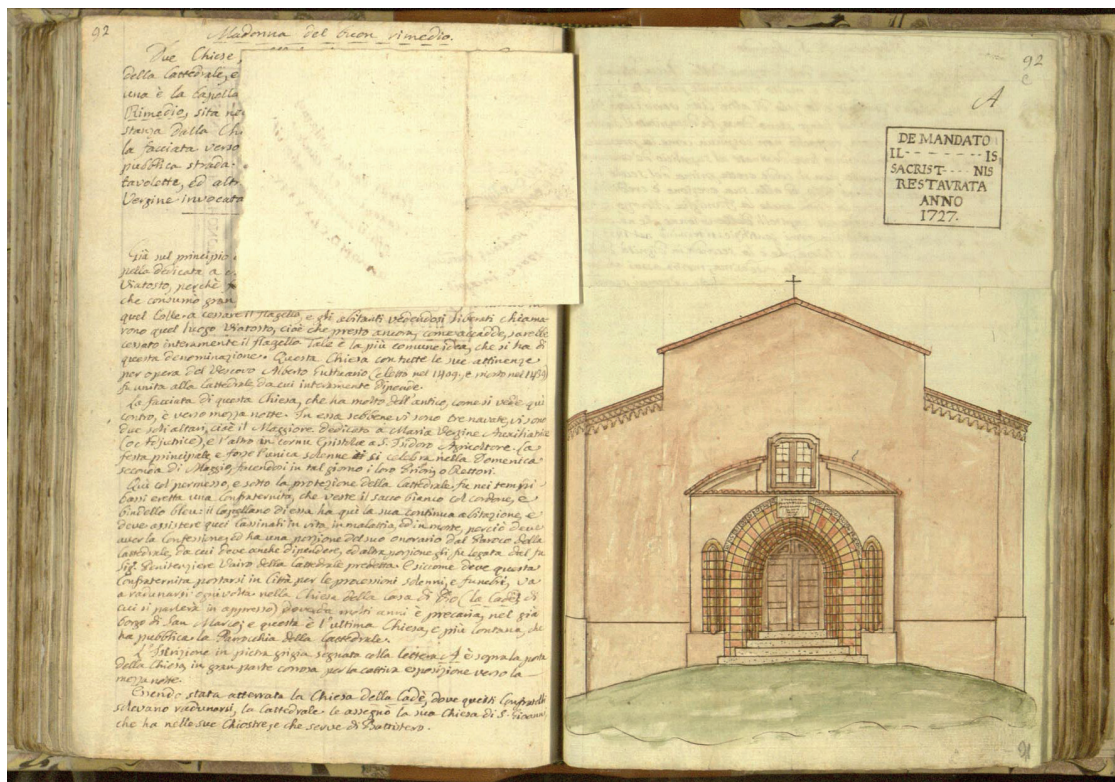 92
Madonna del buon rimedio.
Due Chiese,
della Cattedrale, e
una è la Capella
Rimedio, sita ne
stanza dalla Chi
la facciata verso
pubblica strada.
tavolette, ed alt
Vergine invocata
Già nel principio
pella dedicata a
Viatosto, perchè
che consumò gran
quel Colle a cessare il flagello, e gli abitanti vedendosi liberati chiama
rono quel luogo Viatosto, cioè che presto ancora, come accadde, sarebbe
cessato interamente il flagello. Tale è la più comune idea, che si ha di
questa denominazione. Questa Chiesa con tutte le sue attinenze
per opera del Vescovo Alberto Guttuario (eletto nel 1409. e morto nel 1439)
fu unita alla Cattedrale da cui interamente dipende.
La facciata di questa Chiesa, che ha molto dell'antico, come si vede qui
contro, è verso mezza notte. In essa sebbene vi sono tre navate, vi sono
due soli altari, cioè il Maggiore dedicato a Maria Vergine Auxiliatrice
e l'altro in cornu Epistolæ a S. Isidoro Agricoltore. La
festa principale, e forse l'unica solenne si celebra nella Domenica
seconda di Maggio, facendosi in tal giorno i loro Priori, o Rettori.
Qui col permesso, e sotto la protezione della Cattedrale, fu nei tempi
bassi eretta una Confraternita, che veste il sacco bianco col cordone, e
bindello bleu: il Capellano di essa, ha quì la sua continua abitazione, e
deve assistere quei Cassinali in vita, in malattia, ed in morte, perciò deve
aver la Confessione, ed ha una porzione del suo onorario dal Paroco della
Cattedrale, da cui deve anche dipendere, ed altra porzione gli fu legata dal fu
Sig. Penitenziere Vairo della Cattedrale predetta. E siccome deve questa
Confraternita portarsi in Città per le processioni solenni, e funebri, va
a radunarsi ogni volta nella Chiesa della Casa di Dio (la Cadè, di
cui si parlerà in appresso) dove da molti anni è precaria, nel già
borgo di San Marco; e questa è l'ultima Chiesa, e più lontana, che
ha pubblica la Parrochia della Cattedrale.
L'Iscrizione in pietra grigia segnata colla lettera A è sopra la porta
della Chiesa, in gran parte corrosa per la cattiva esposizione verso la
mezza notte.
Essendo stata atterrata la Chiesa della Cadè, dove questi Confratelli
solevano radunarsi, la Cattedrale le assegnò la sua Chiesa di S. Giovanni,
che ha nelle sue Chiostre, e che serve di Battistero.
92
A
DE MANDATO
IL - - - - - - - IS
SACRIST - - - NIS
RESTAVRATA
ANNO
1727.